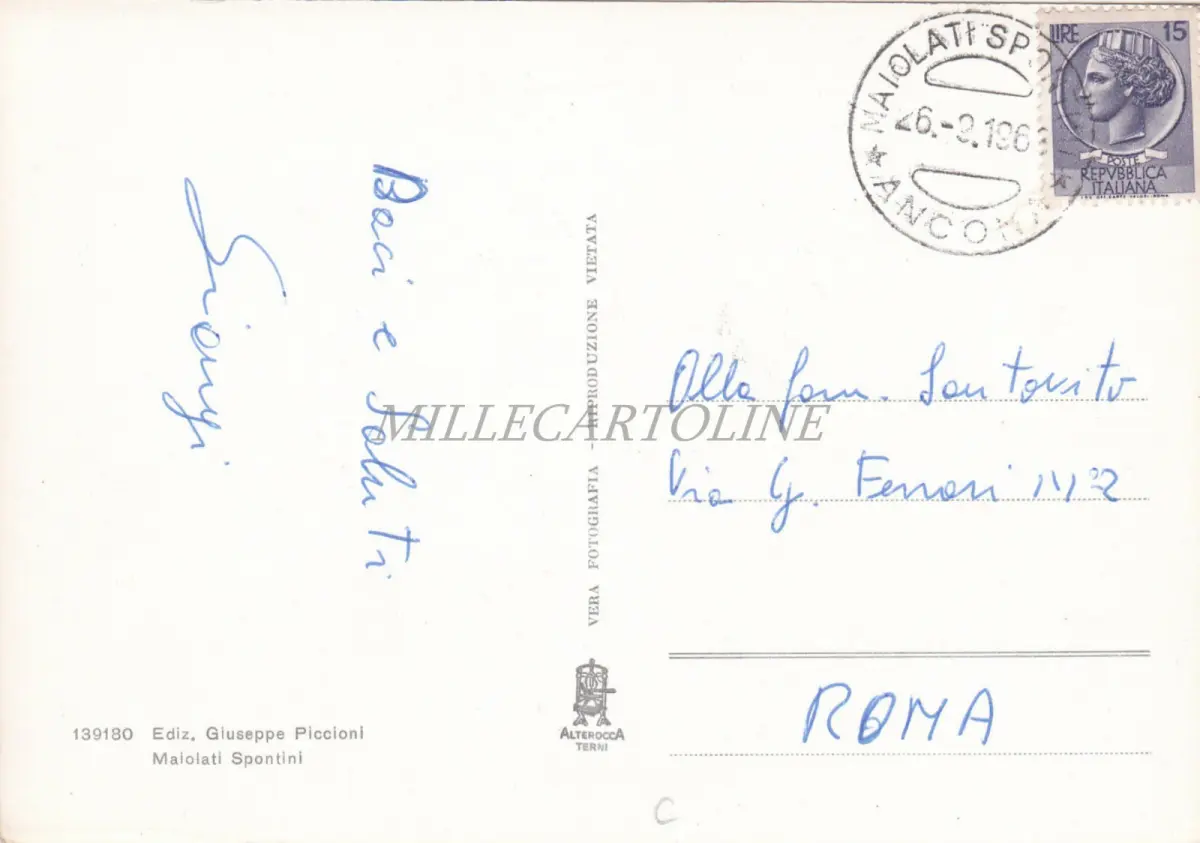 MAIOLATI SPONTINI
26.-9.196
★ ANCONA ★
LIRE 15
POSTE
REPVBBLICA
ITALIANA
Baci e Saluti
Giongi
VERA FOTOGRAFIA - RIPRODUZIONE VIETATA
MILLECARTOLINE
Alla fam. Santovito
Via G. Ferrari
ROMA
139180 Ediz. Giuseppe Piccioni
Maiolati Spontini
ALTEROCCA
TERNI
C